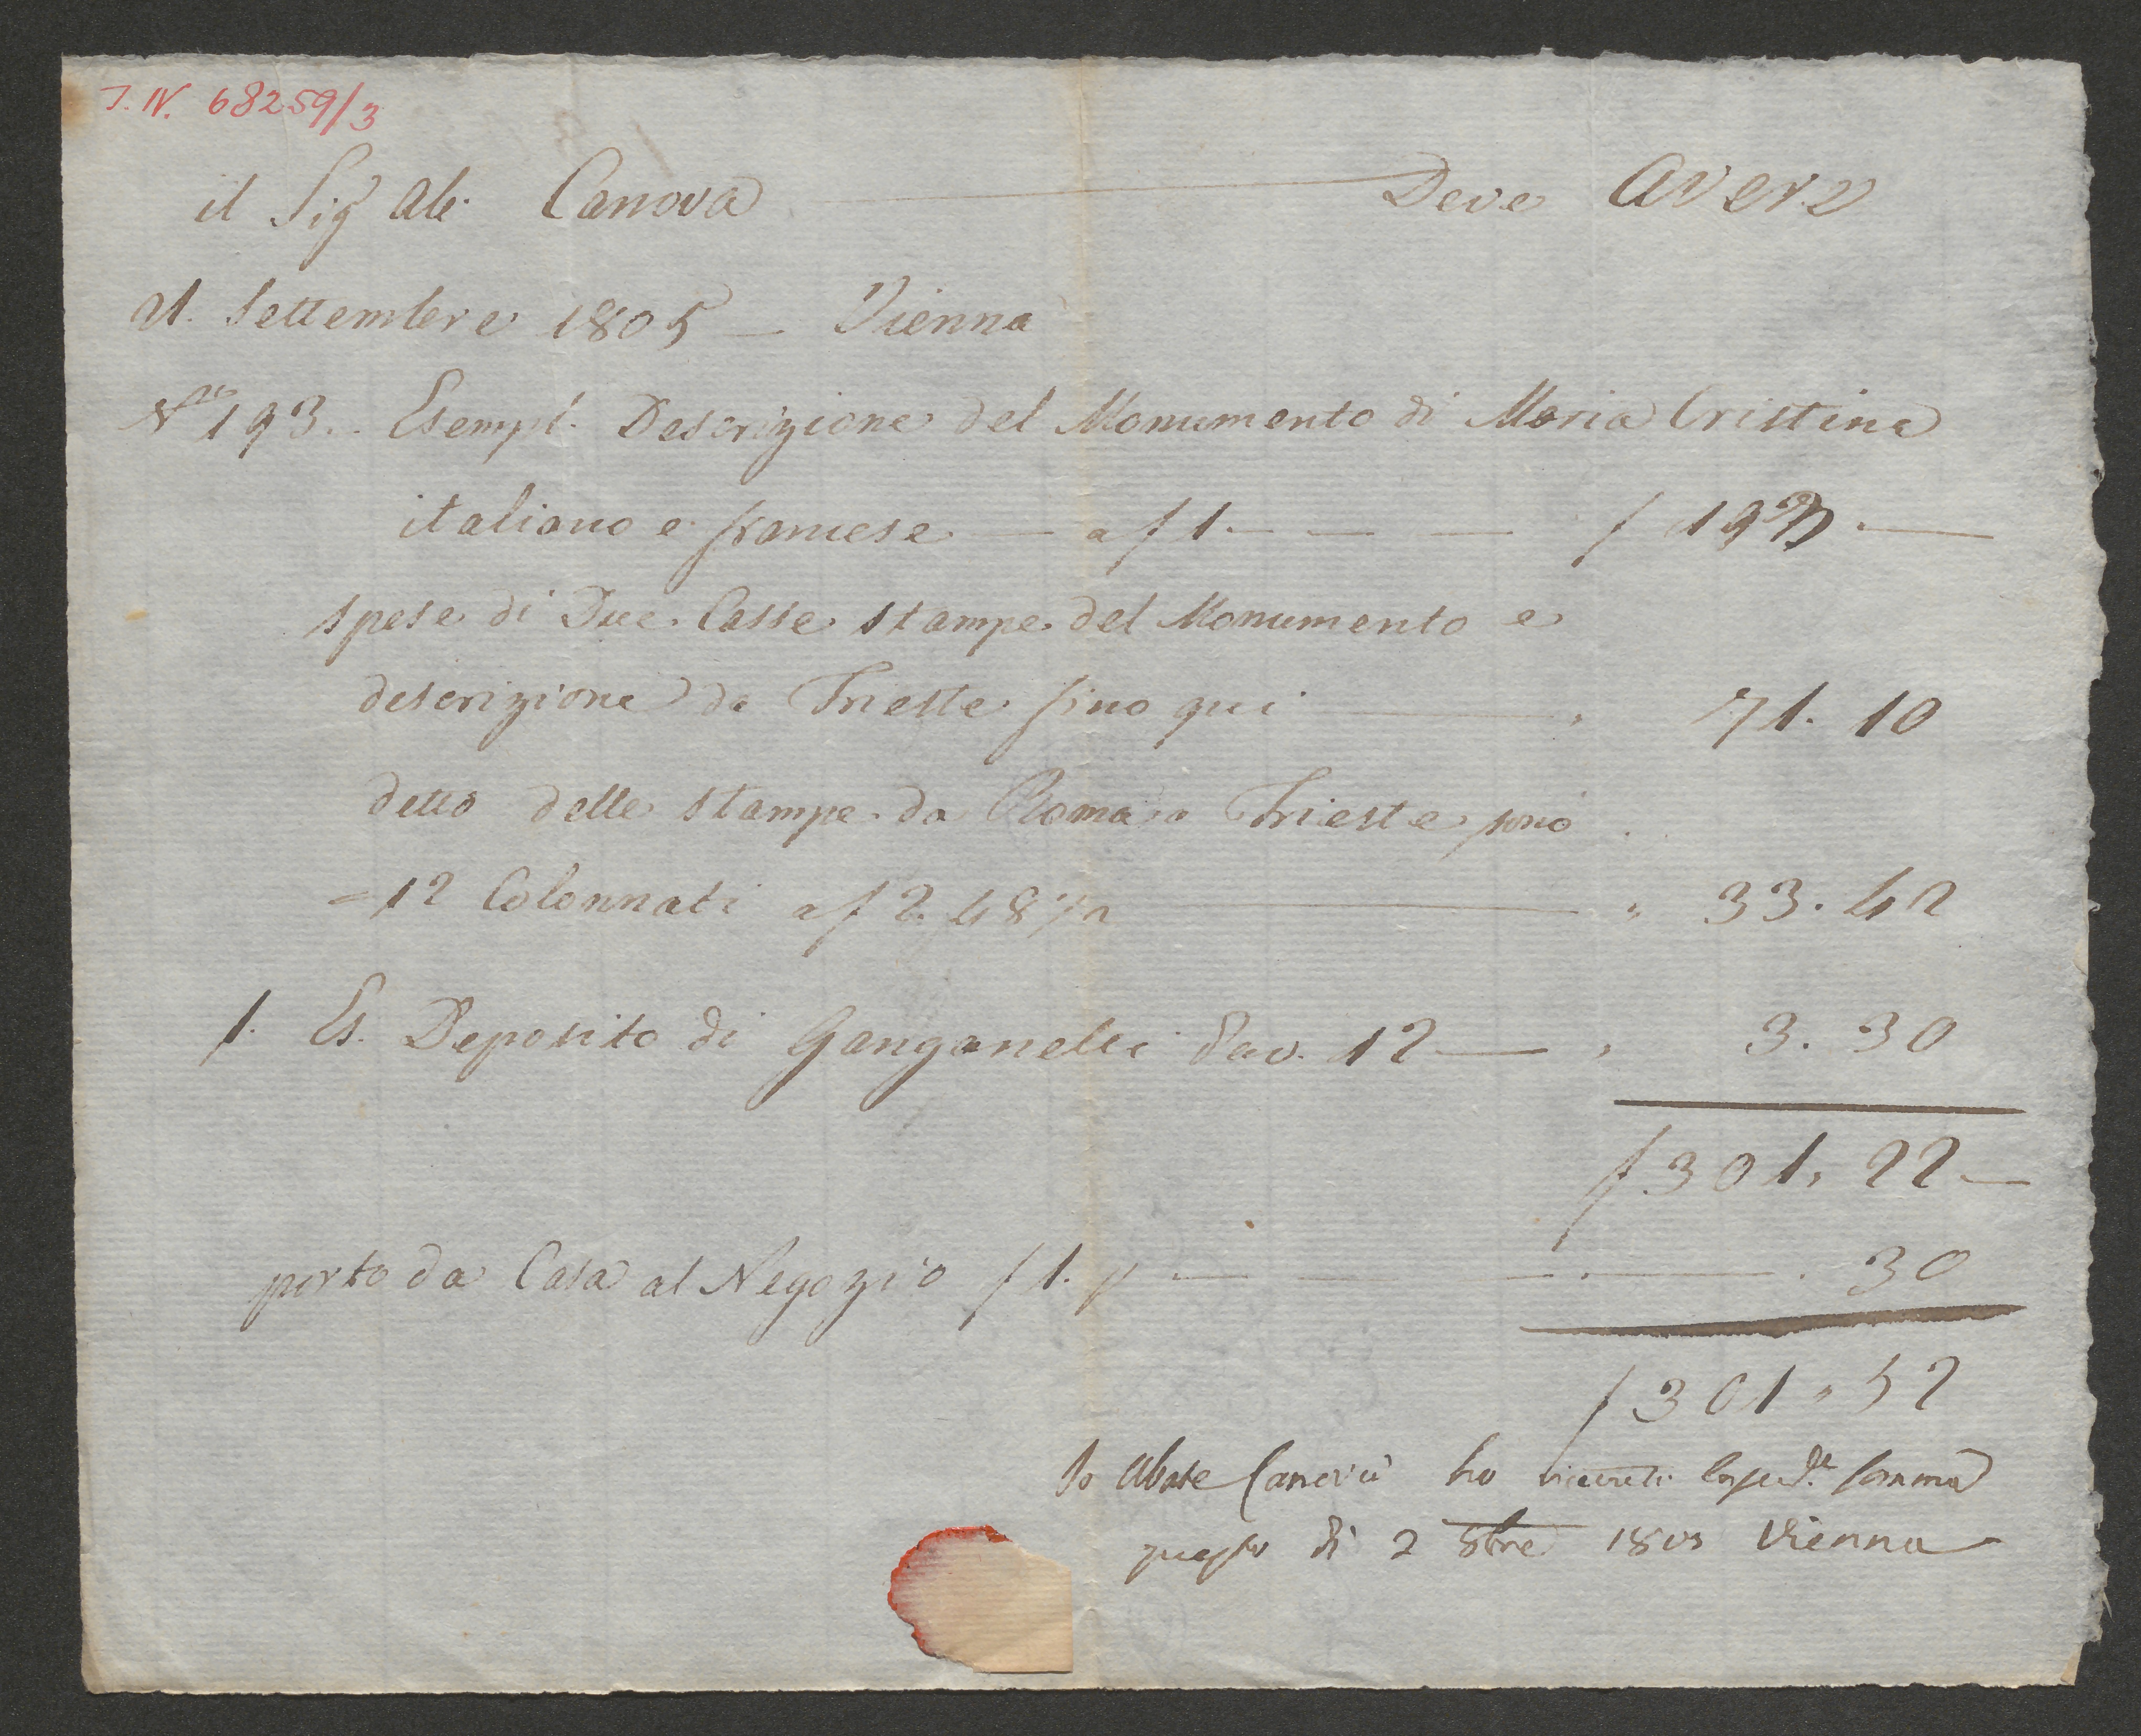 J. N. 68259/3
il Sigr Ab. Canova — Deve Avere
al. Settembre 1805 — Vienna
No 193. Esempl. Descrizione del Monumento di Maria Cristina
italiano e francese — a f 1. — — — f 193. —
spese di Due Casse stampe del Monumento e
descrizione da Trieste fino qui — " 71. 10
detto delle stampe da Roma a Trieste
= 12 Colonnati a f 2. 48 1/2 — " 33. 42
1. Es. Deposito di Ganganelli 12 — " 3. 30
f 301. 22 —
porto da Casa al Negozio f 1. — — . 30
f 301 " 52
Io Abate Canova ho ricevuto somma
questo dì 2 8bre 1805 Vienna